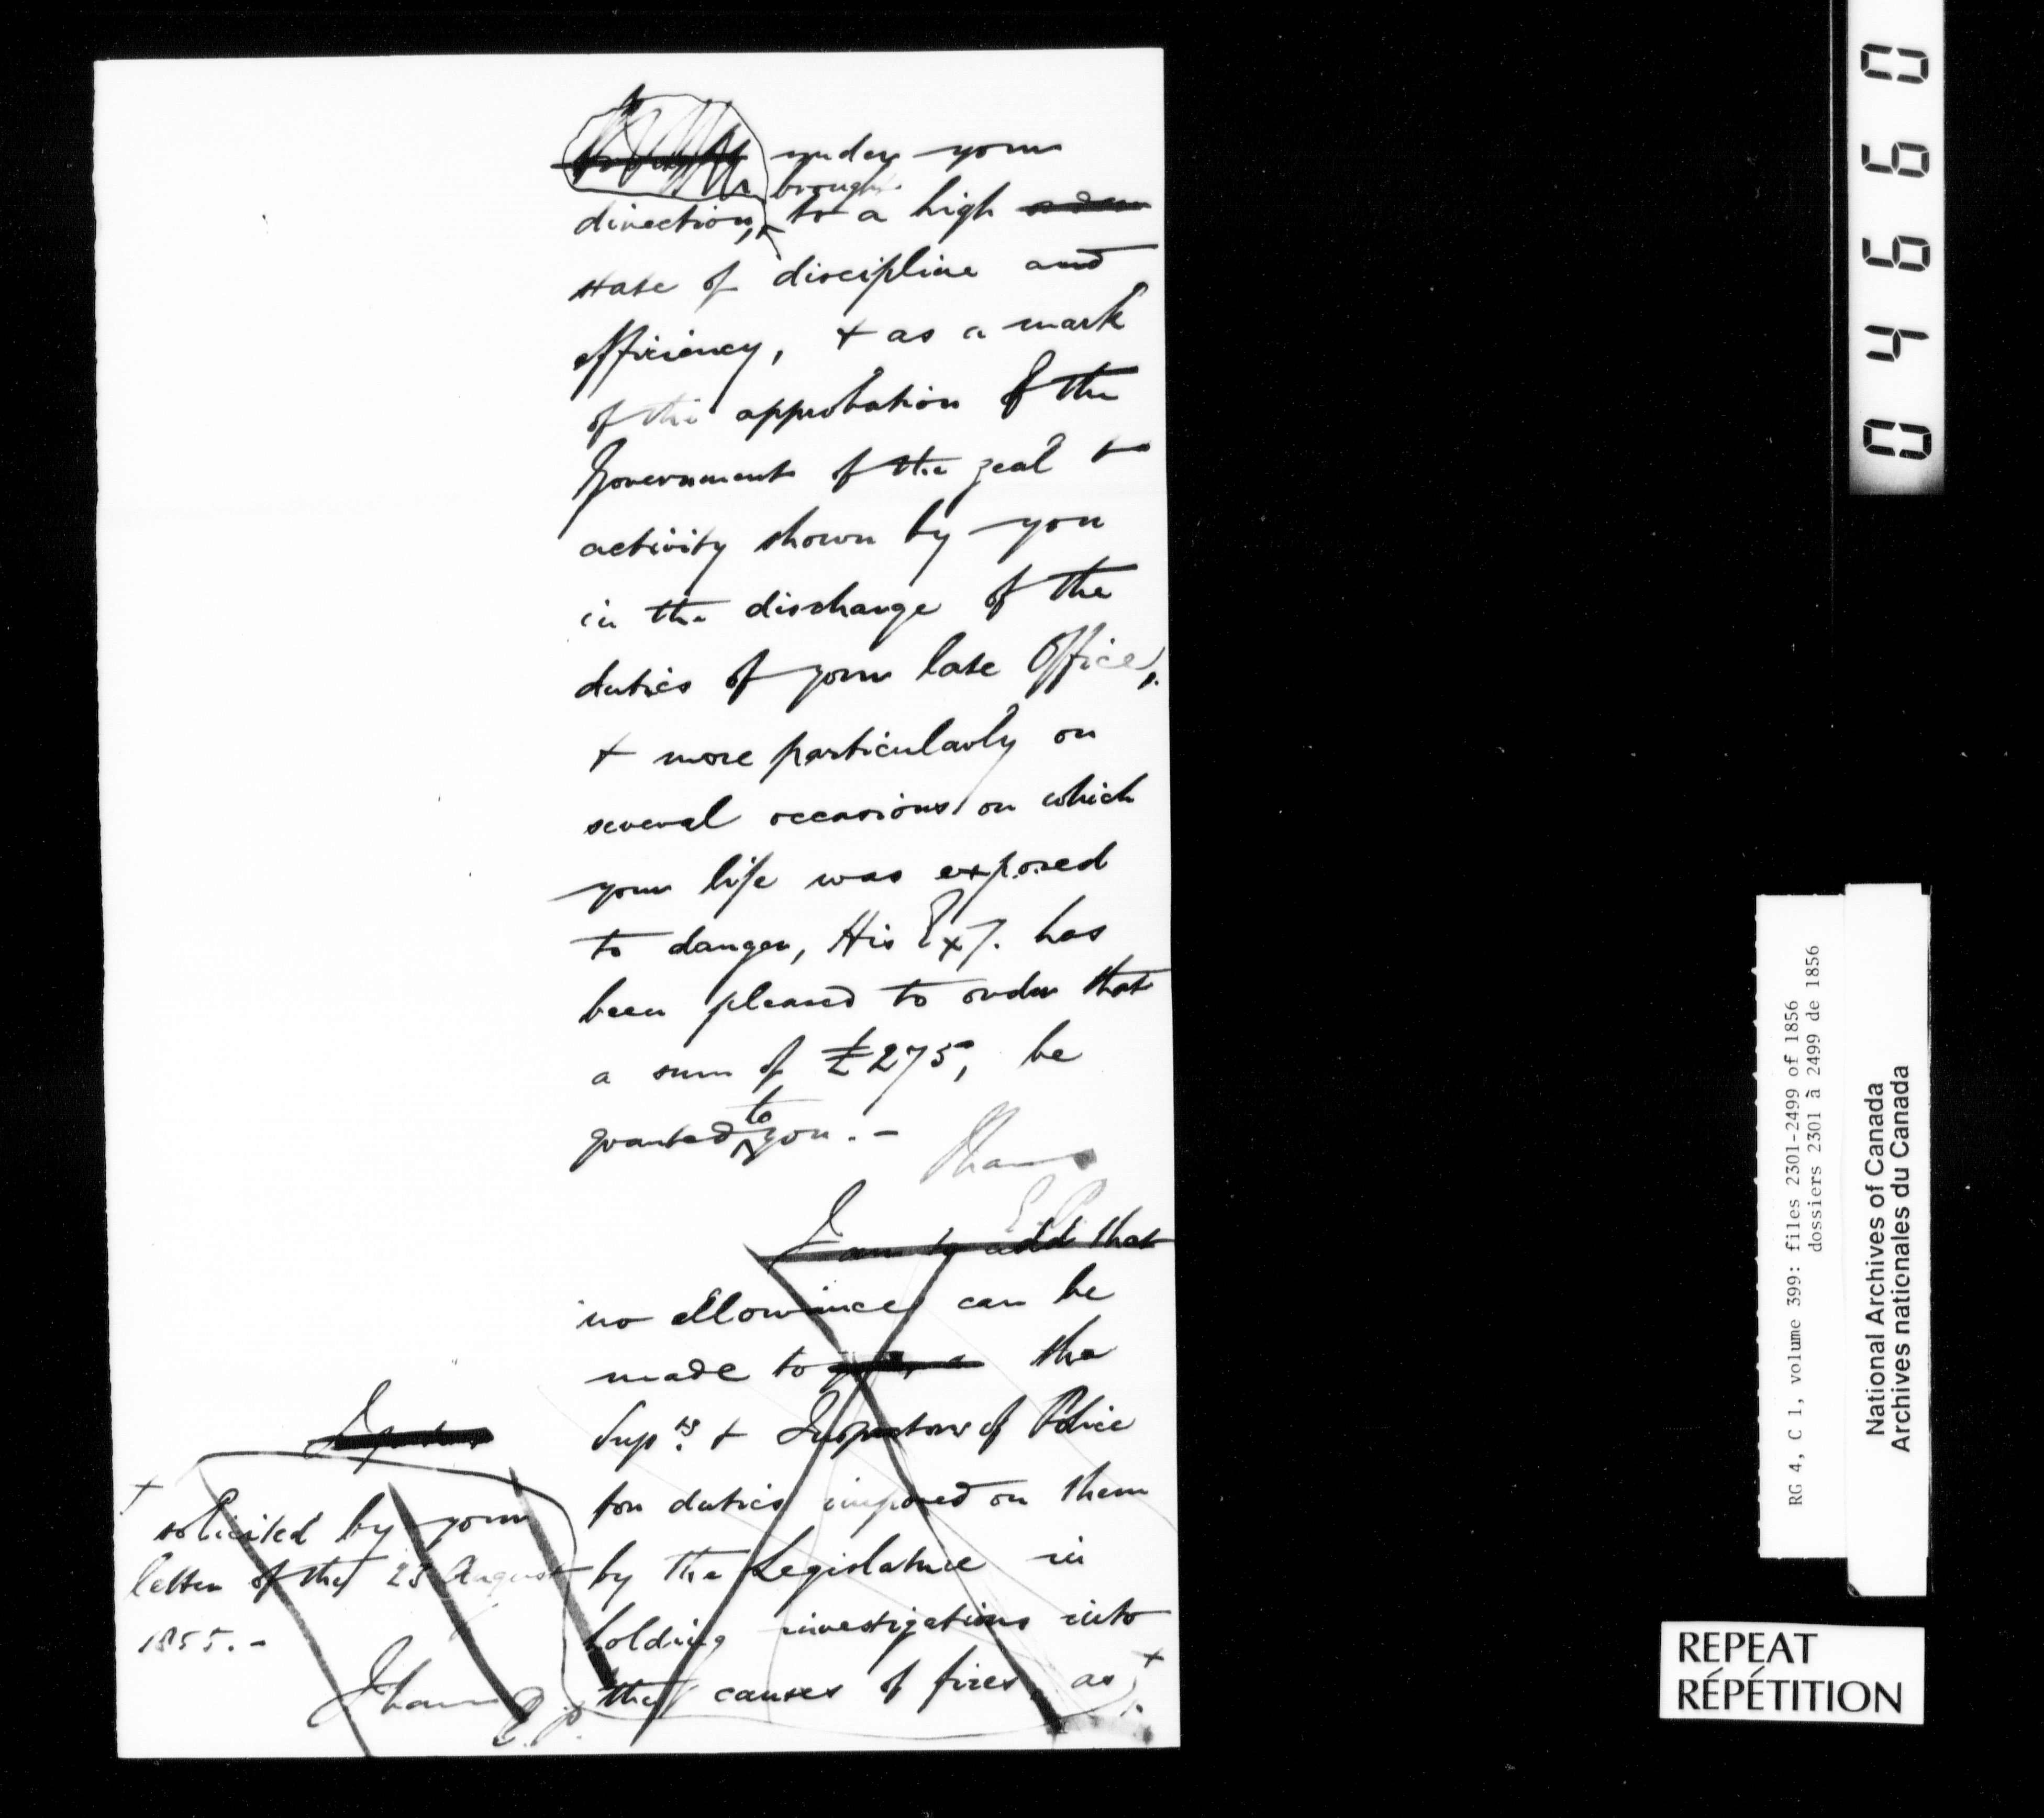 brought under your
brought
direction, to a high
state of discipline and
efficiency, + as a mark
of the approbation of the
Government of the zeal +
activity shown by you
in the discharge of the
duties of your late Office,
+ more particularly on
several occasions on which
your life was exposed
to danger, His Exy. has
been pleased to order that
a sum of £275, be
to
granted you. -
I have
E. P.
I am to add that
no allowance can be
made to the
Supts. + Inspectors of Police
for duties imposed on them
by the Legislature in
holding investigations into
the causes of fires, as +
+
solicited by your
letter of the 25 August
1855. -
I have
E. P.
04660
RG 4, C 1, volume 399: files 2301-2499 of 1856
dossiers 2301 à 2499 de 1856
National Archives of Canada
Archives nationales du Canada
REPEAT
RÉPÉTITION